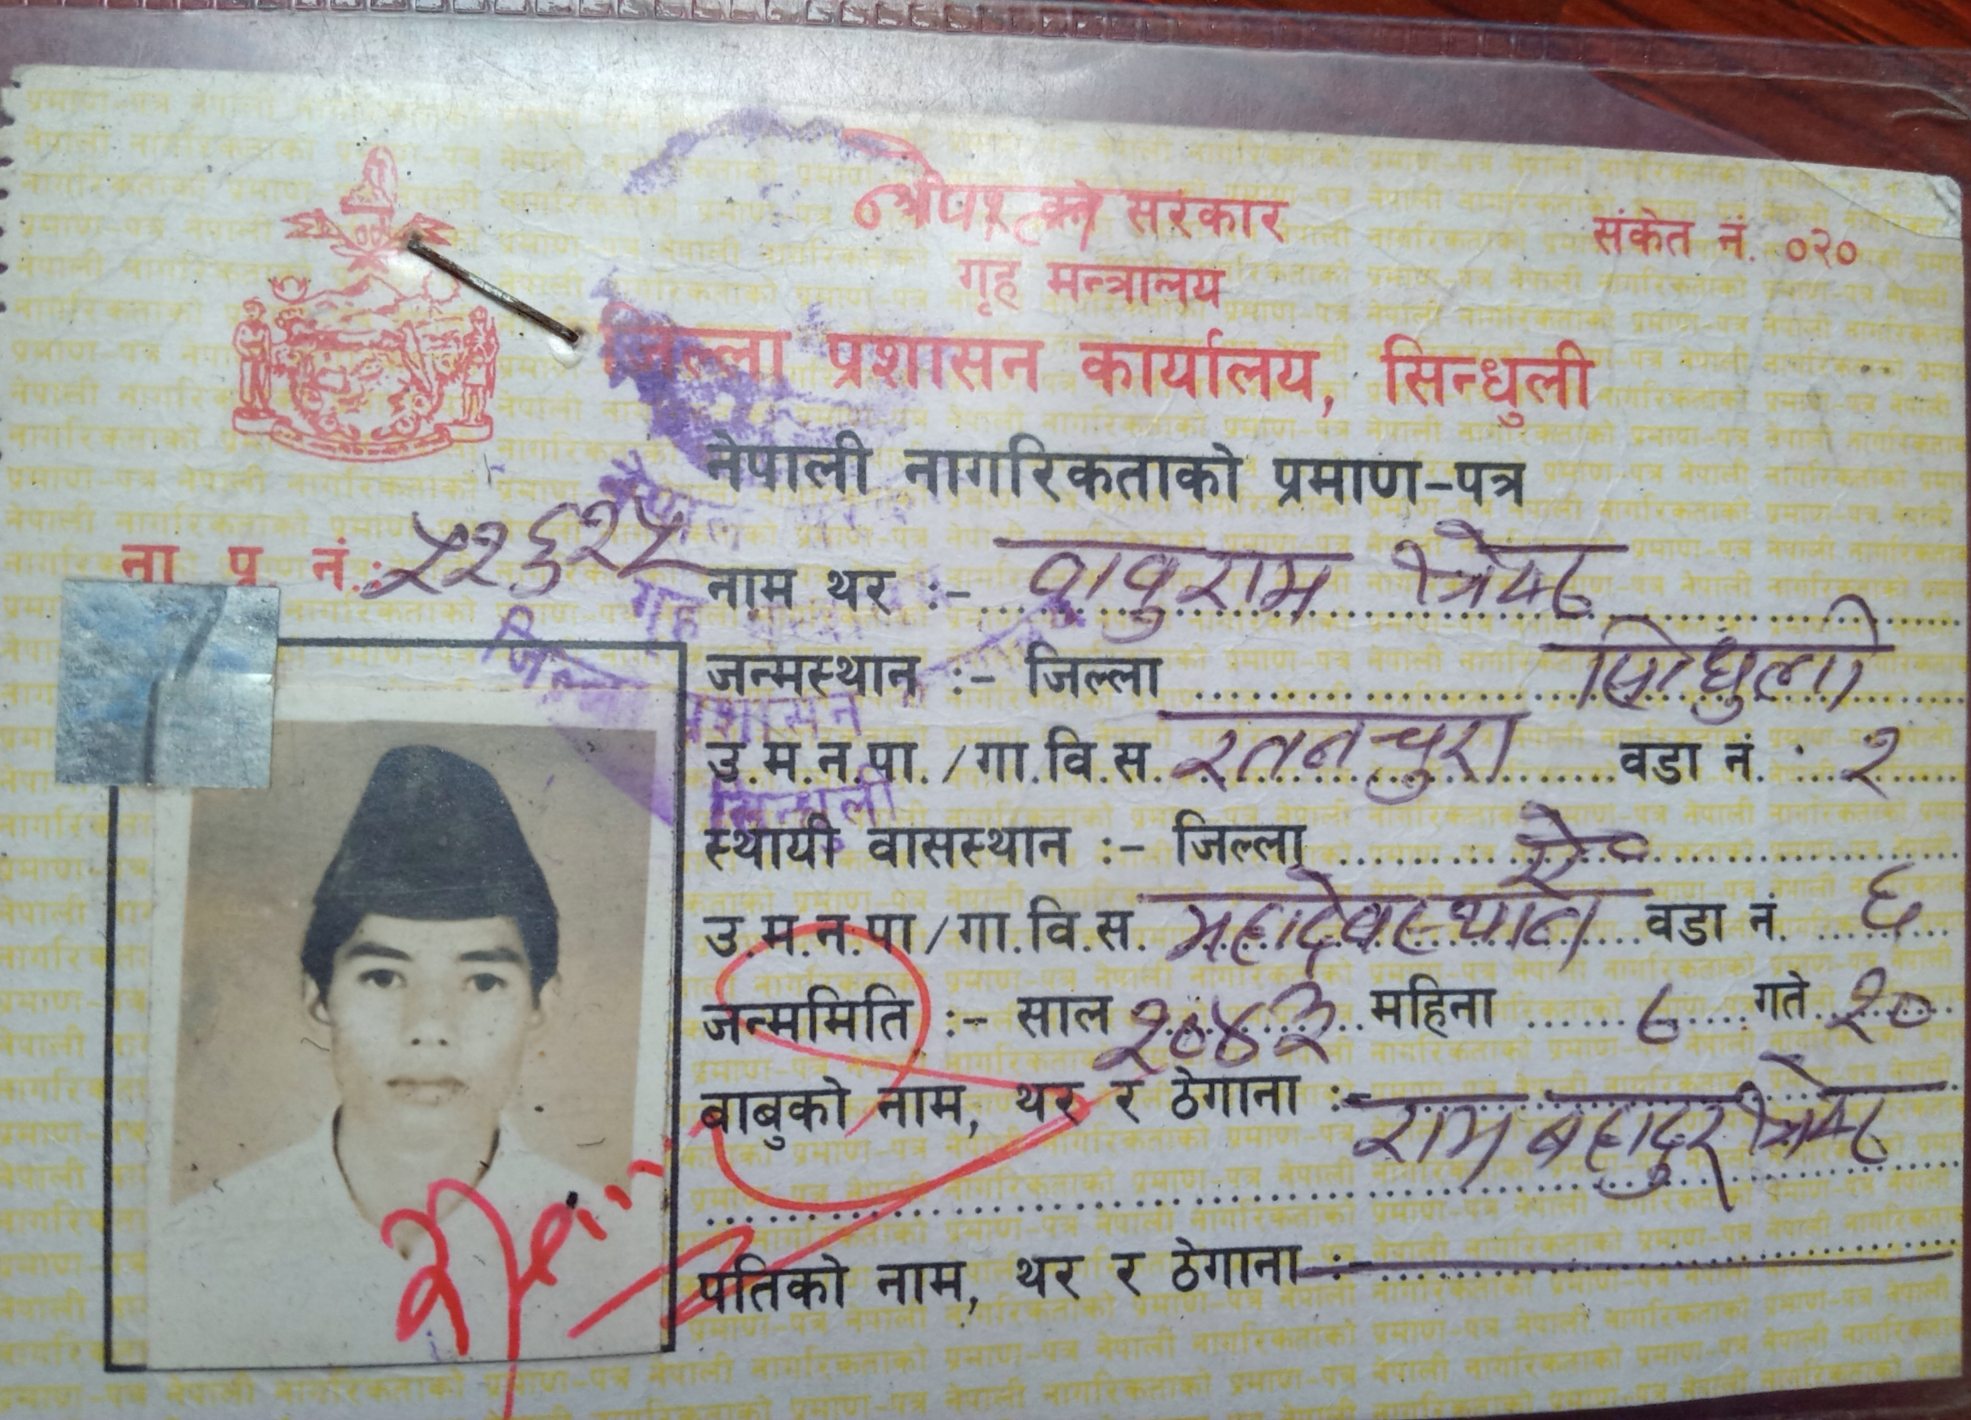 श्री ५ को सरकार
संकेत नं. ०२०
गृह मन्त्रालय
जिल्ला प्रशासन कार्यालय, सिन्धुली
नेपाली नागरिकताको प्रमाण-पत्र
ना. प्र. नं.: ५२६२५
नाम थर :- बाबुराम श्रेष्ठ
जन्मस्थान :- जिल्ला सिन्धुली
उ.म.न.पा./गा.वि.स. रतनचुरा वडा नं. : २
स्थायी वासस्थान :- जिल्ला ऐ०
उ.म.न.पा/गा.वि.स. महादेवस्थान वडा नं. ६
जन्ममिति :- साल २०४३ महिना ८ गते २०
बाबुको नाम, थर र ठेगाना :- राम बहादुर श्रेष्ठ
पतिको नाम, थर र ठेगाना :-